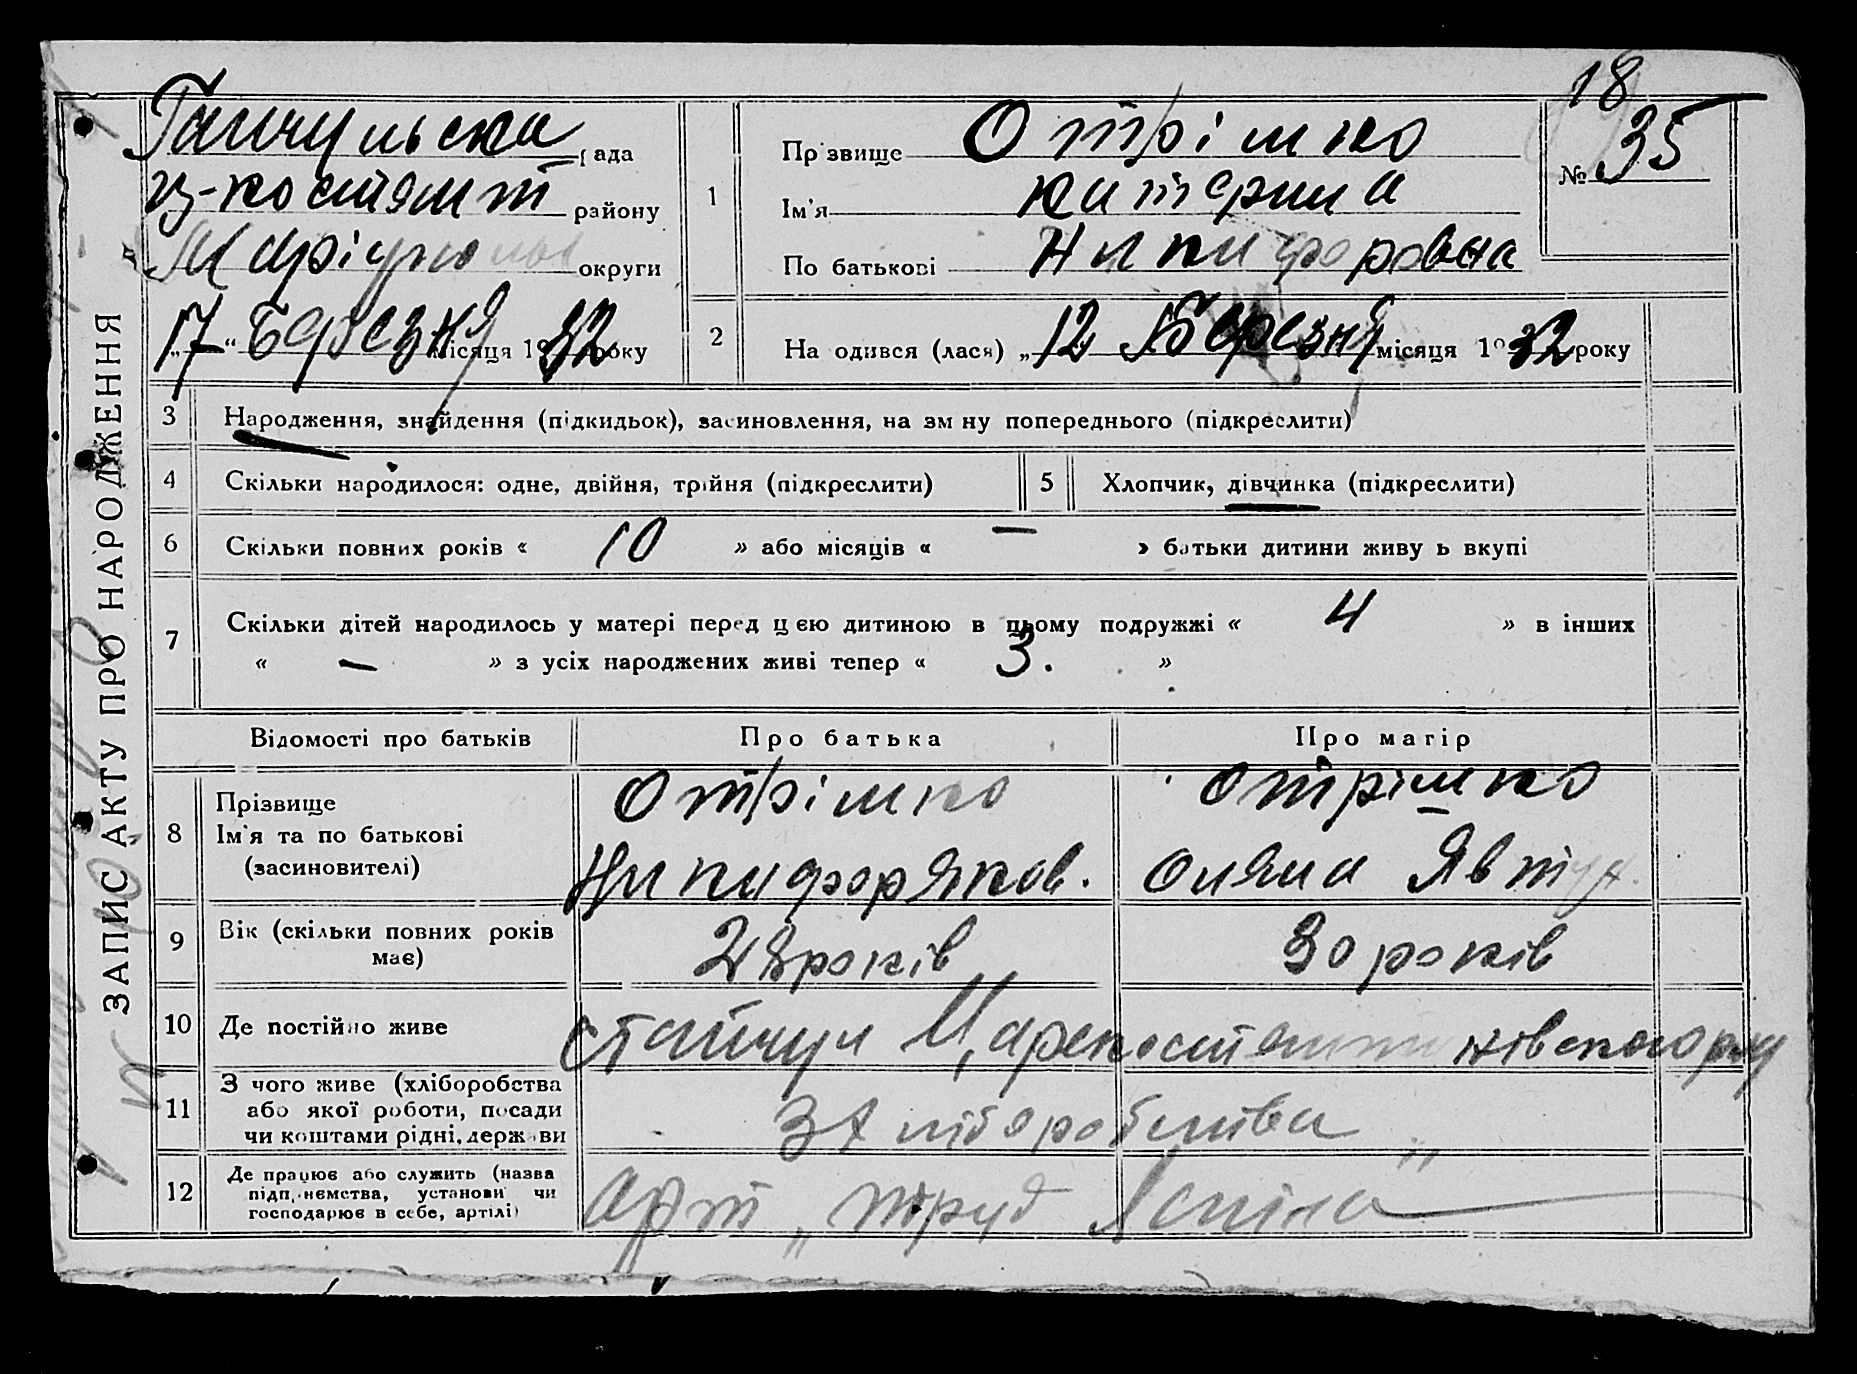 18
Гайчульска рада
ц-костянт району
Маріупольс округи
„17“ Березня місяця 1932 року
1
Прізвище Отрішко
Ім'я Катерина
По батькові Никифоровна
№ 35
2
Народився (лася) „12 Березня місяця 1932 року
ЗАПИС АКТУ ПРО НАРОДЖЕННЯ
3 Народження, знайдення (підкидьок), засиновлення, на зміну попереднього (підкреслити)
4 Скільки народилося: одне, двійня, трійня (підкреслити)
5 Хлопчик, дівчинка (підкреслити)
6 Скільки повних років « 10 » або місяців « — » батьки дитини живуть вкупі
7 Скільки дітей народилось у матері перед цією дитиною в цьому подружжі « 4 » в інших
« — » з усіх народжених живі тепер « 3. »
Відомості про батьків
Про батька
Про матір
8 Прізвище
Ім'я та по батькові
(засиновителі)
Отрішко
Никифор Яков.
Отрішко
Оляна Явтух.
9 Вік (скільки повних років
має)
28 років
30 років
10 Де постійно живе
с Гайчул Царекостянтинівського р-ну
11 З чого живе (хліборобства
або якої роботи, посади
чи коштами рідні, держави
З хліборобства
12 Де працює або служить (назва
підприємства, установи чи
господарює в себе, артілі)
Арт „труд Леніна“